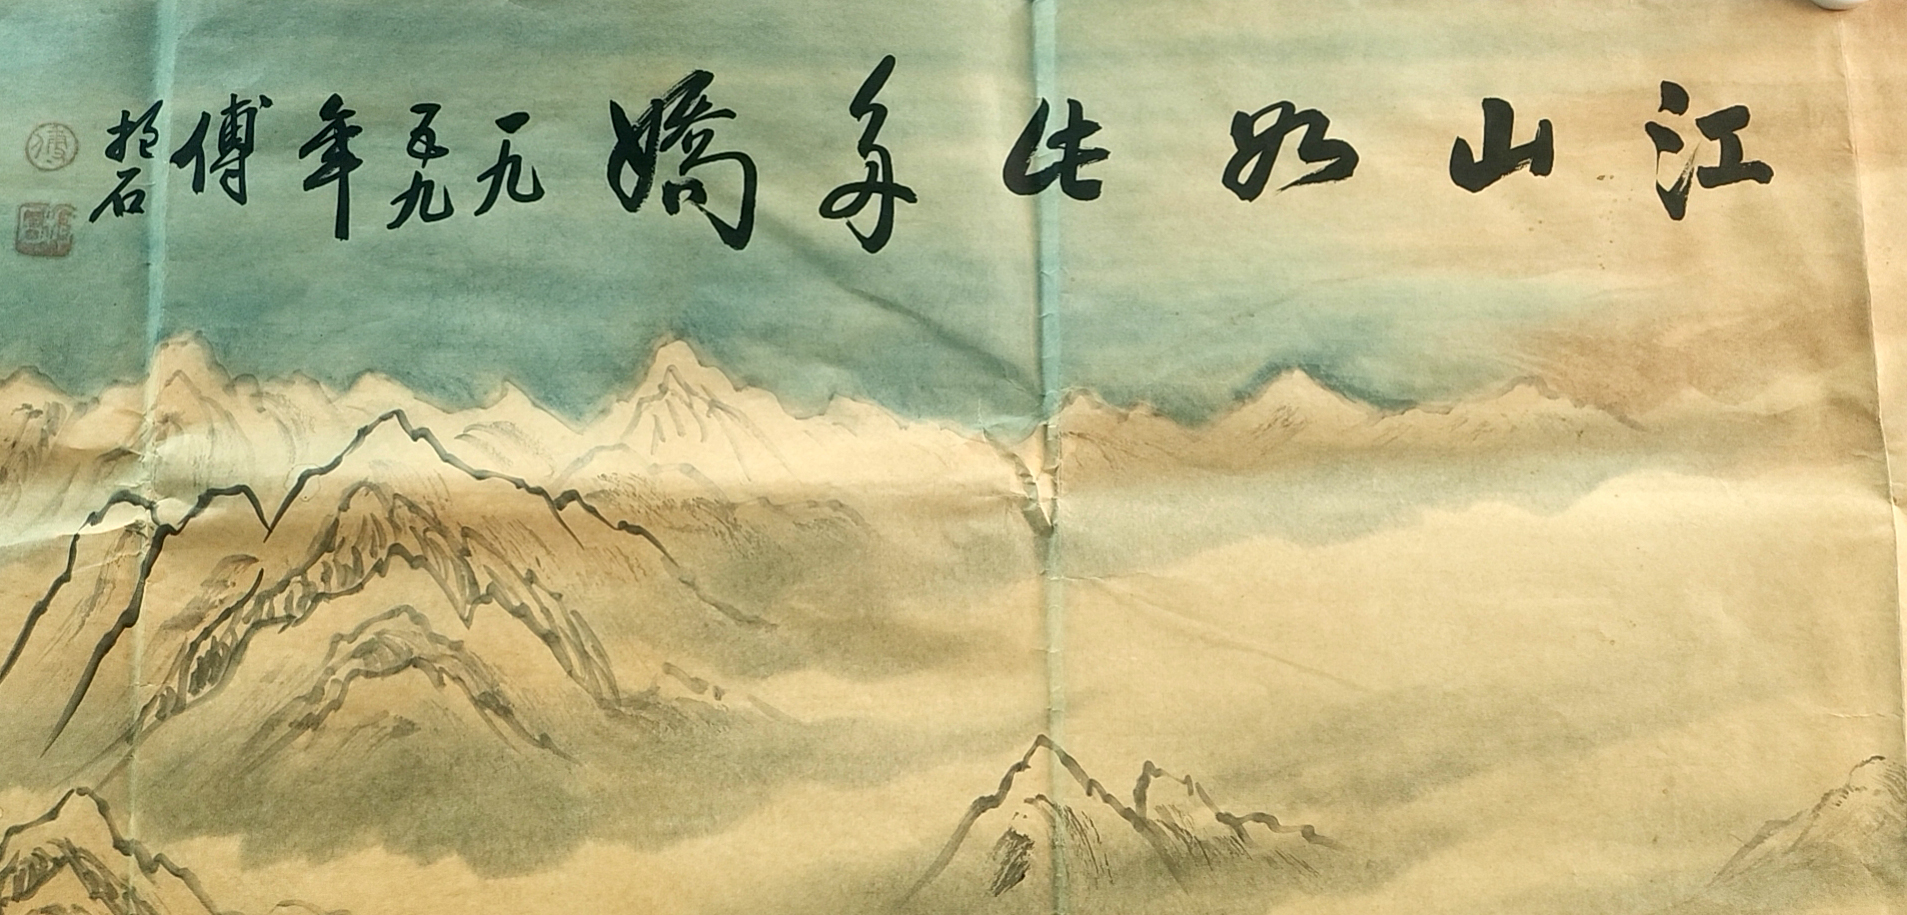 江山如此多嬌一九五九年傅抱石
傅